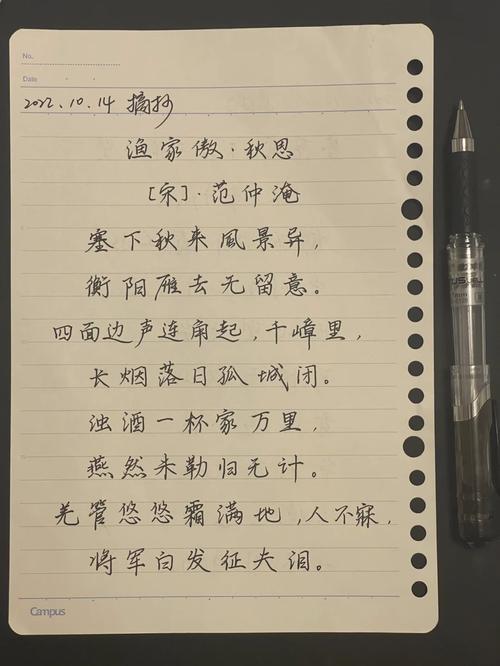 No.
Date
2022.10.14 摘抄
渔家傲·秋思
[宋]·范仲淹
塞下秋来風景异，
衡阳雁去无留意。
四面边声连角起，千嶂里，
长烟落日孤城闭。
浊酒一杯家万里，
燕然未勒归无计。
羌管悠悠霜满地，人不寐，
将军白发征夫泪。
Campus